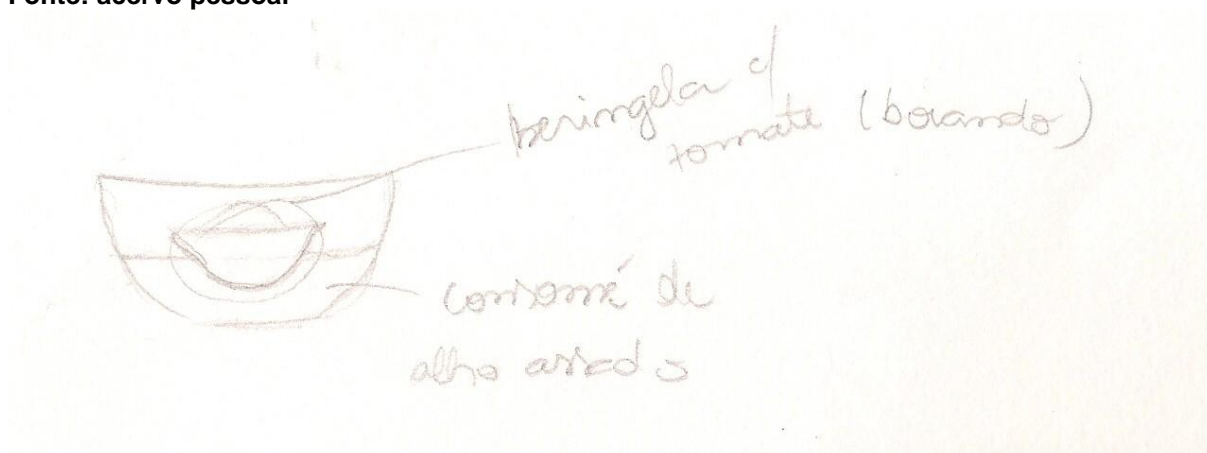 Fonte: acervo pessoal
beringela c/
tomate (boiando)
consomé de
alho assado